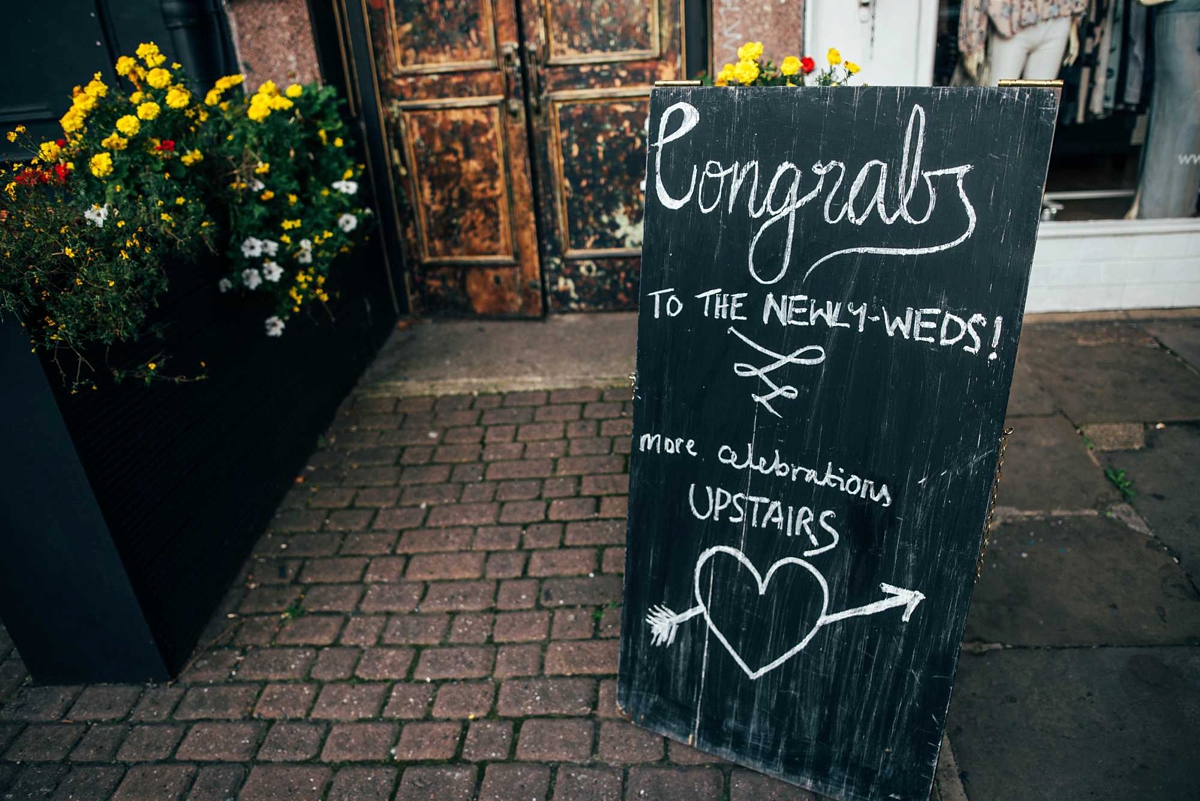 Congrats
TO THE NEWLY-WEDS!
more celebrations
UPSTAIRS